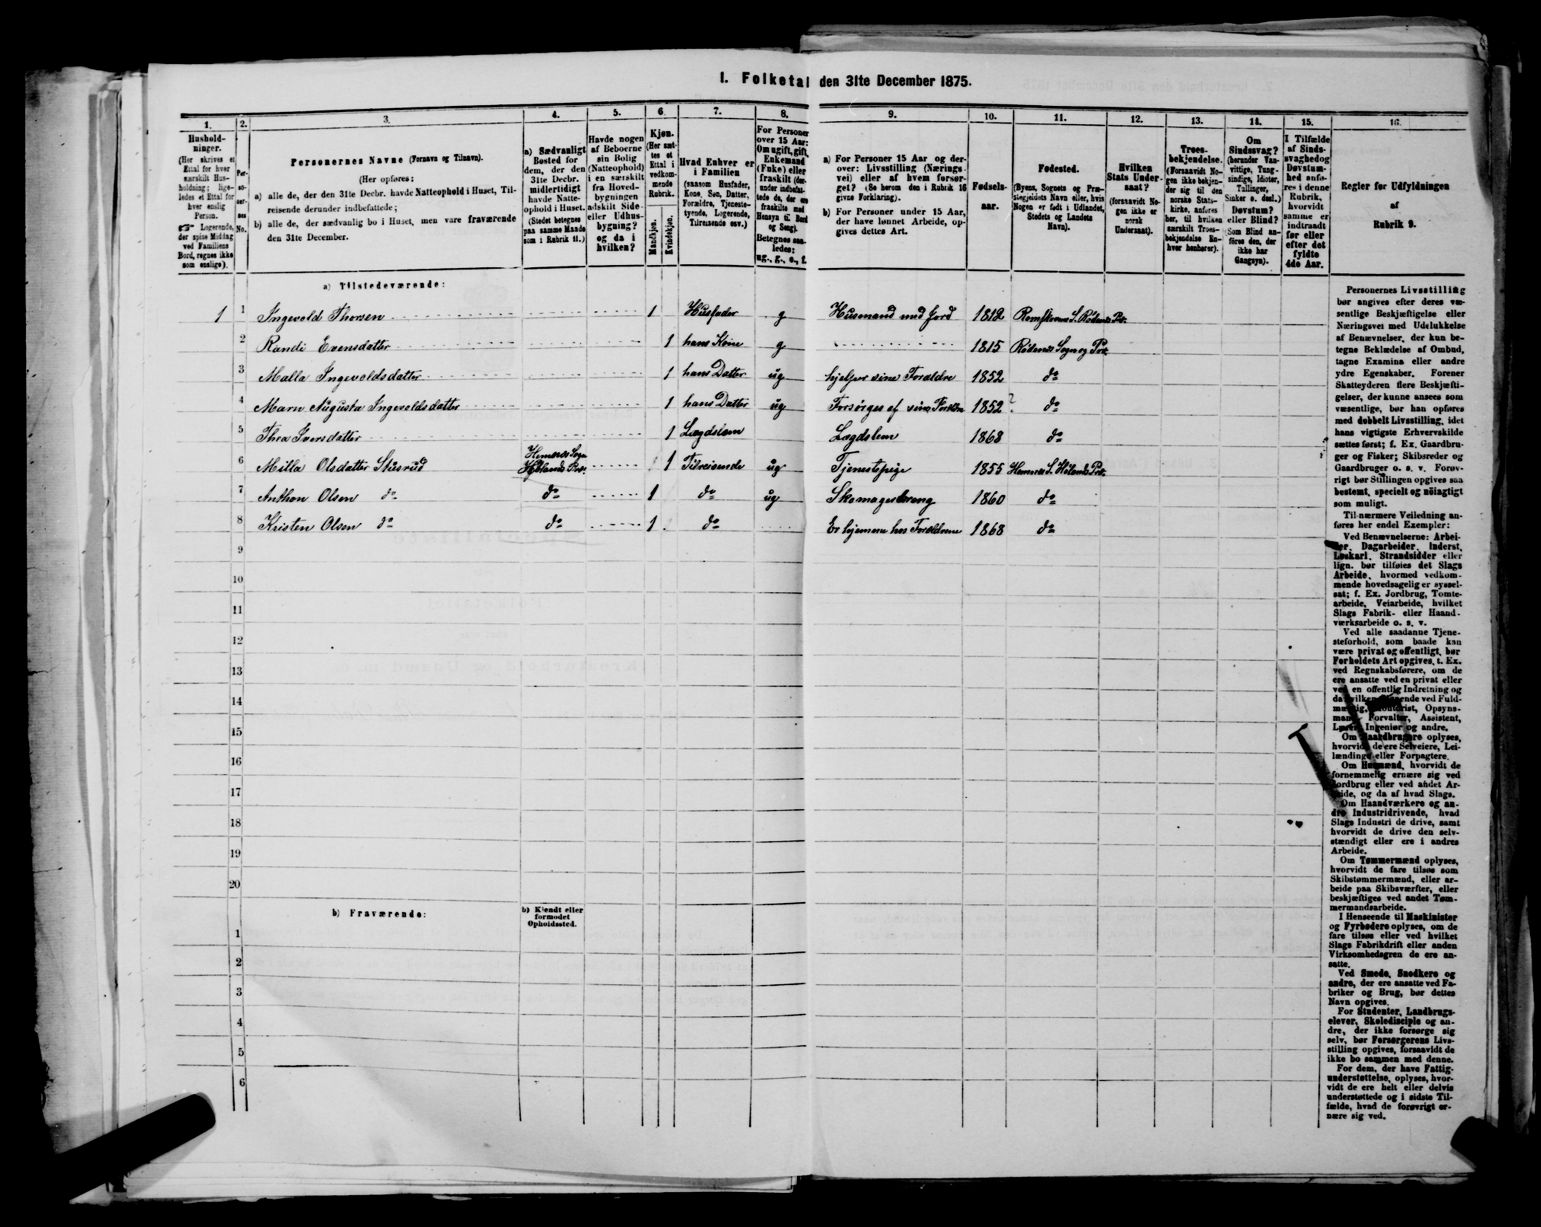 I. Folketal den 31te December 1875.
1. 2. 3. 4. 5. 6. 7. 8. 9. 10. 11. 12. 13. 14. 15. 16.
Hushold-
ninger.
(Her skrives et
Ettal for hver
særskilt Hus-
holdning; lige-
ledes et Ettal for
hver enslig
Person.
☞ Logerende,
der spise Middag
ved Familiens
Bord, regnes ikke
som enslige).
Per-
soner-
nes
No.
Personernes Navne (Fornavn og Tilnavn).
(Her opføres:
a) alle de, der den 31te Decbr. havde Natteophold i Huset, Til-
reisende derunder indbefattede;
b) alle de, der sædvanlig bo i Huset, men vare fraværende
den 31te December.
a) Sædvanligt
Bosted for
dem, der den
31te Decbr.
midlertidigt
havde Natte-
ophold i Huset.
(Stedet betegnes
paa samme Maade
som i Rubrik 11.)
Havde nogen
af Beboerne
sin Bolig
(Natteophold)
i en særskilt
fra Hoved-
bygningen
adskilt Side-
eller Udhus-
bygning?
og da i
hvilken?
Kjøn.
(Her sæt-
tes et
Ettal i
vedkom-
mende
Rubrik.
Mandkjøn.
Kvindekjøn.
Hvad Enhver er
i Familien
(saasom Husfader,
Kone, Søn, Datter,
Forældre, Tjeneste-
tyende, Logerende,
Tilreisende osv.)
For Personer
over 15 Aar:
Om ugift, gift,
Enkemand
(Fuke) eller
fraskilt (der-
under indbefat-
tede de, der ere
fraskilte med
Hensyn til Bord
og Seng).
Betegnes saa-
ledes:
ug., g., e., f.
a) For Personer 15 Aar og der-
over: Livsstilling (Nærings-
vei) eller af hvem forsør-
get? (Se herom den i Rubrik 16
givne Forklaring).
b) For Personer under 15 Aar,
der have lønnet Arbeide, op-
gives dettes Art.
Fødsels-
aar.
Fødested.
(Byens, Sognets og Præ-
stegjeldets Navn eller, hvis
Nogen er født i Udlandet,
Stedets og Landets
Navn).
Hvilken
Stats Under-
saat?
(forsaavidt No-
gen ikke er
norsk
Undersaat).
Troes-
bekjendelse.
(Forsaavidt No-
gen ikke bekjen-
der sig til den
norske Stats-
kirke, anføres
her, til hvilken
særskilt Troes-
bekjendelse En-
hver henhører).
Om
Sindssvag?
(herunder Van-
vittige, Tung-
sindige, Idioter,
Tullinger,
Sinker o. desl.)
Døvstum?
eller Blind?
(Som Blind an-
føres den, der
ikke har
Gangsyn).
I Tilfælde
af Sinds-
svaghed og
Døvstum-
hed anfø-
res i denne
Rubrik,
hvorvidt
samme er
indtraadt
før eller
efter det
fyldte
4de Aar.
Regler før Udfyldningen
af
Rubrik 9.
a) Tilstedeværende:
1 1 Ingevold Thorsen 1 Husfader g Husmand med Jord 1812 Romskoven S. Rødenes Pr.
2 Randi Evensdatter 1 hans Kone g 1815 Rødenes Sogn og Pr.
3 Malla Ingevoldsdatter 1 hans Datter ug hjelper sine Forældre 1852 do
4 Marn Augusta Ingevoldsdatter 1 hans Datter ug Forsørges af sine Forældre 1852? do
5 Thea Iversdatter 1 Lægdslem Lægdslem 1868 do
6 Milla Olsdatter Hemnes Sogn Hølands Pr. 1 Tilreisende ug Tjenestepige 1855 Hemnes S. Hølands Pr.
7 Anthon Olsen do do 1 do ug Skomagerdreng 1860 do
8 Kristen Olsen do do 1 do Er hjemme hos Forældrene 1868 do
9
10
11
12
13
14
15
16
17
18
19
20
b) Fraværende:
b) Kjendt eller
formodet
Opholdssted.
1
2
3
4
5
6
Personernes Livsstilling
bør angives efter deres væ-
sentlige Beskjæftigelse eller
Næringsvei med Udelukkelse
af Benævnelser, der kun be-
tegne Beklædelse af Ombud,
tagne Examina eller andre
ydre Egenskaber. Forener
Skatteyderen flere Beskjæfti-
gelser, der kunne ansees som
væsentlige, bør han opføres
med dobbelt Livsstilling, idet
hans vigtigste Erhvervskilde
sættes først; f. Ex. Gaardbru-
ger og Fisker; Skibsreder og
Gaardbruger o. s. v. Forøv-
rigt bør Stillingen opgives saa
bestemt, specielt og nöiagtigt
som muligt.
Til nærmere Veiledning an-
føres her endel Exempler:
Ved Benævnelserne: Arbei-
der, Dagarbeider, Inderst,
Løskarl, Strandsidder eller
lign. bør tilføies det Slags
Arbeide, hvormed vedkom-
mende hovedsagelig er syssel-
sat; f. Ex. Jordbrug, Tomte-
arbeide, Veiarbeide, hvilket
Slags Fabrik- eller Haand-
værksarbeide o. s. v.
Ved alle saadanne Tjene-
steforhold, som baade kan
være privat og offentligt, bør
Forholdets Art opgives, t. Ex.
ved Regnskabsførere, om de
ere ansatte ved en privat eller
ved en offentlig Indretning og
da hvilken; lignende ved Fuld-
mægtig, Kontorist, Opsyns-
mand, Forvalter, Assistent,
Lærer, Ingeniør og andre.
Om Gaardbrugere oplyses,
hvorvidt de ere Selveiere, Lei-
lændinge eller Forpagtere.
Om Husmænd, hvorvidt de
fornemmelig ernære sig ved
Jordbrug eller ved andet Ar-
beide, og da af hvad Slags.
Om Haandværkere og an-
dre Industridrivende, hvad
Slags Industri de drive, samt
hvorvidt de drive den selv-
stændigt eller ere i andres
Arbeide.
Om Tømmermænd oplyses,
hvorvidt de fare tilsøs som
Skibstømmermænd, eller ar-
beide paa Skibsværfter, eller
beskjæftiges ved andet Tøm-
mermandsarbeide.
I Henseende til Maskinister
og Fyrbødere oplyses, om de
fare tilsøs eller ved hvilket
Slags Fabrikdrift eller anden
Virksomhedsgren de ere an-
satte.
Ved Smede, Snedkere og
andre, der ere ansatte ved Fa-
briker og Brug, bør dettes
Navn opgives.
For Studenter, Landbrugs-
elever, Skoledisciple og an-
dre, der ikke forsørge sig
selv, bør Forsørgerens Livs-
stilling opgives, forsaavidt de
ikke bo sammen med denne.
For dem, der have Fattig-
understøttelse, oplyses, hvor-
vidt de ere helt eller delvis
understøttede og i sidste Til-
fælde, hvad de forøvrigt er-
nære sig ved.